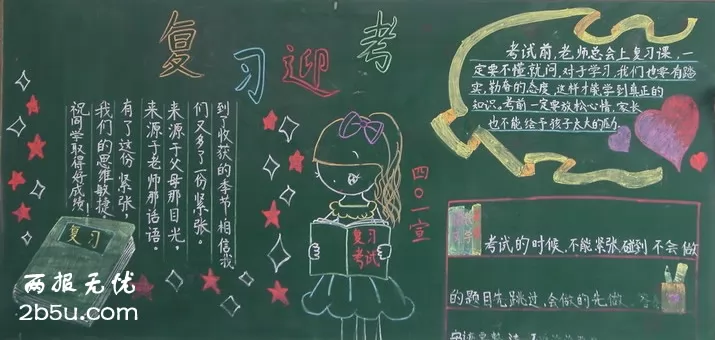 复习迎考
到了收获的季节,相信我
们又多了一份紧张。
来源于父母那目光,
来源于老师那话语。
有了这份紧张,
我们的思维敏捷
祝同学取得好成绩
复习
复习
考试
四〇一宣
考试前,老师总会上复习课,一
定要不懂就问,对于学习,我们也要有踏
实,勤奋的态度,这样才能学到真正的
知识,考前一定要放松心情,家长
也不能给予孩子太大的压力
考试的时候,不能紧张,碰到不会做
的题目先跳过,会做的先做
两报无忧
2b5u.com